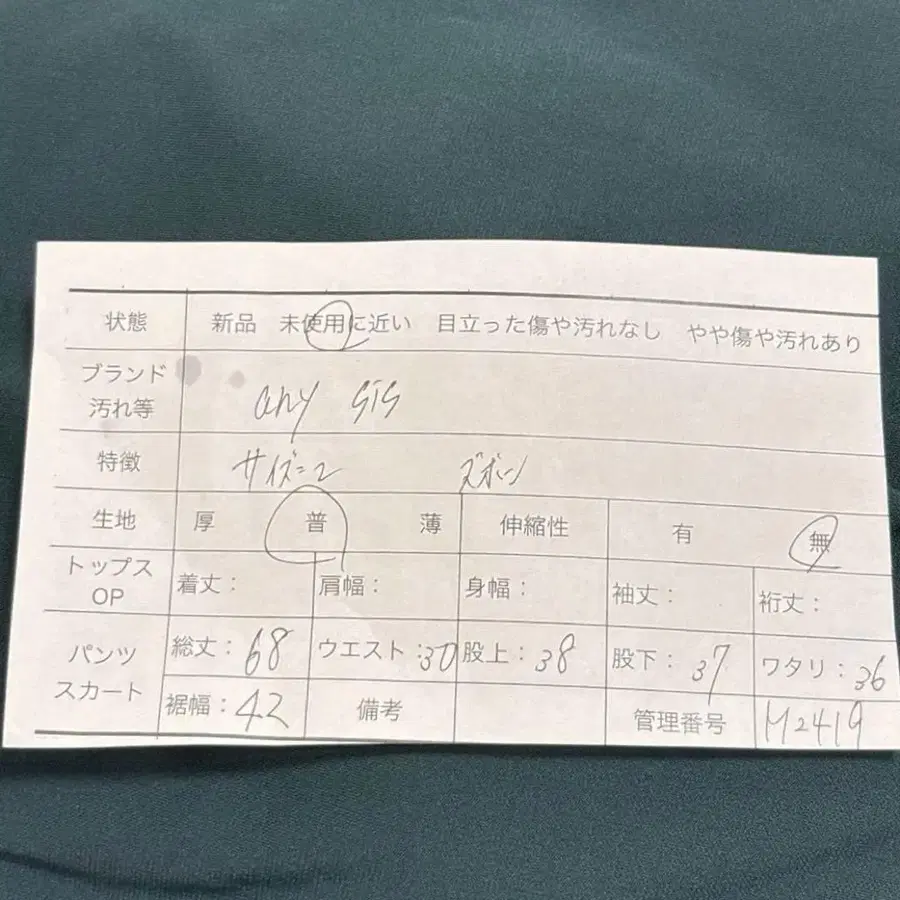 状態 新品 未使用に近い 目立った傷や汚れなし やや傷や汚れあり
ブランド
汚れ等 any sis
特徴 サイズ=2 ズボン
生地 厚 普 薄 伸縮性 有 無
トップス
OP 着丈: 肩幅: 身幅: 袖丈: 裄丈:
パンツ
スカート 総丈:68 ウエスト:30 股上:38 股下:37 ワタリ:36
裾幅:42 備考 管理番号 M2419